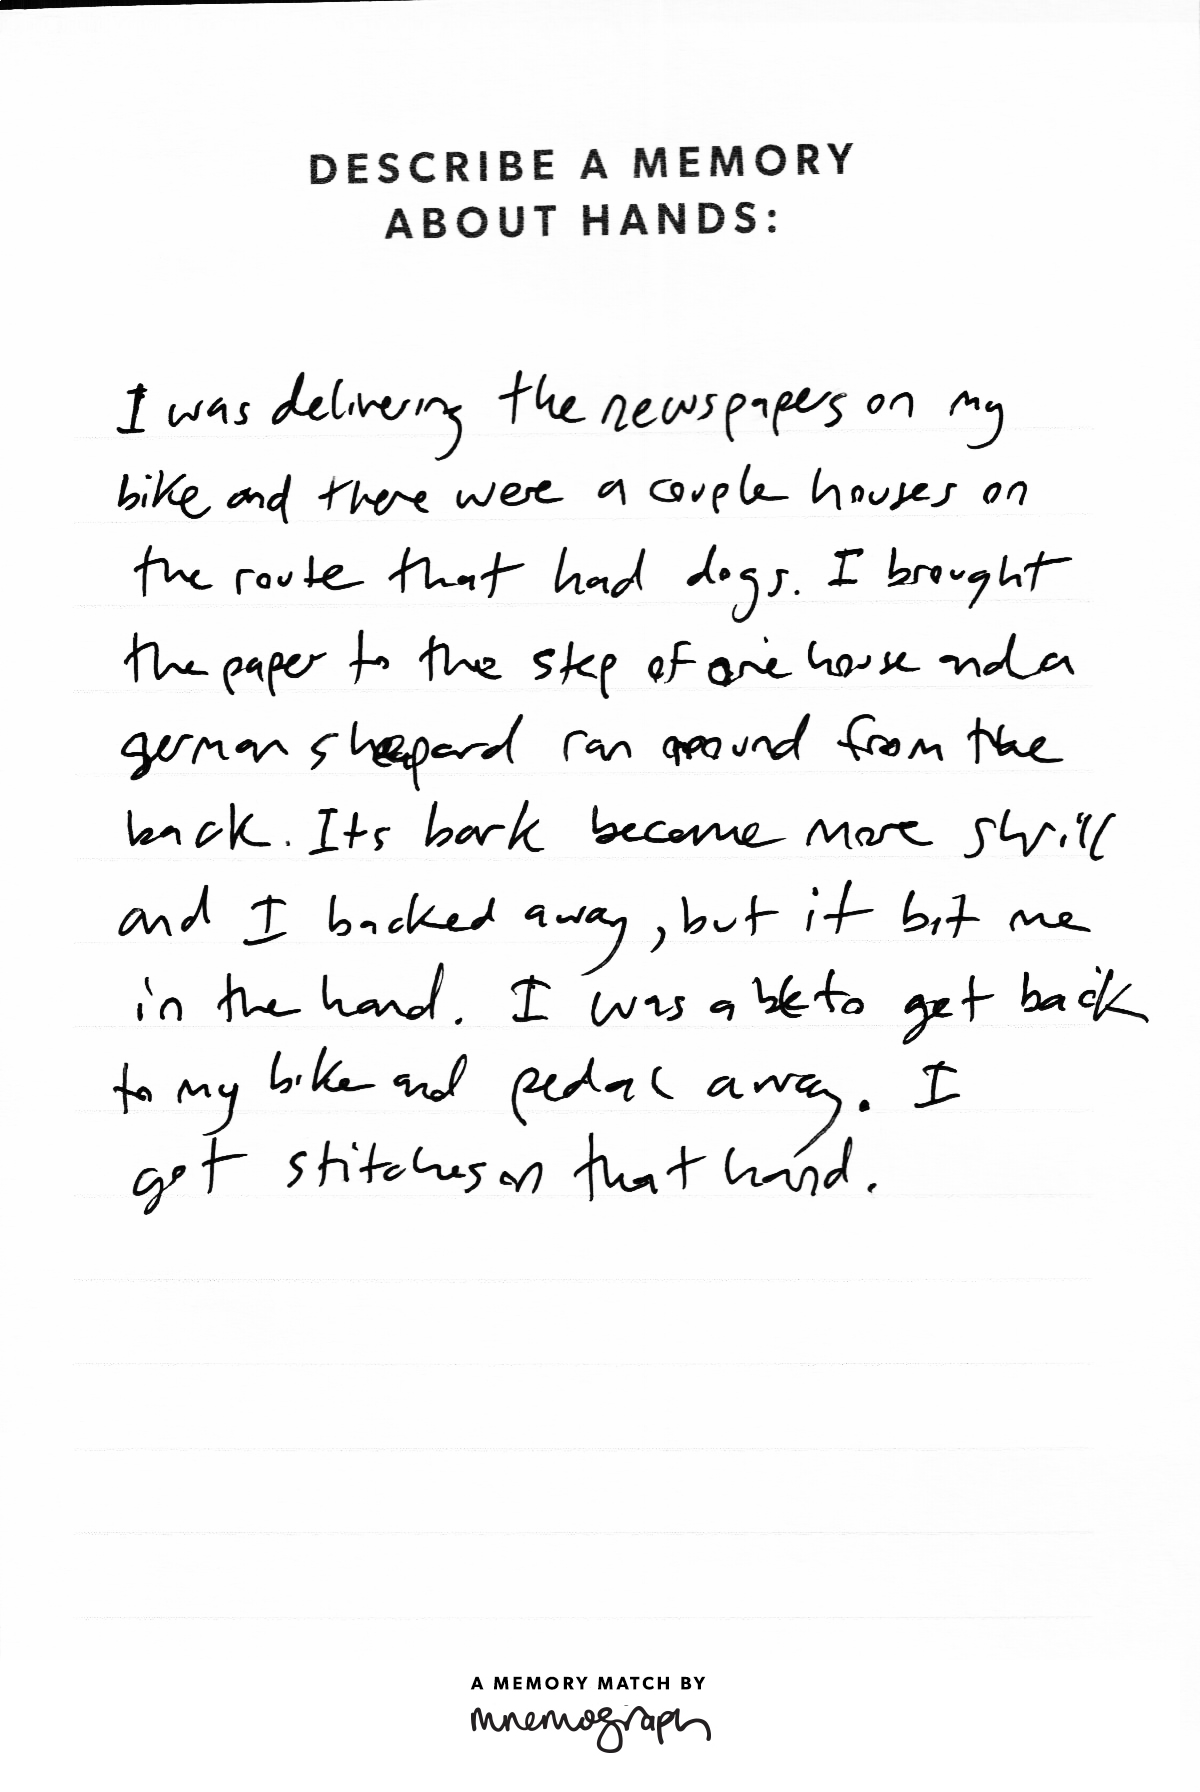 DESCRIBE A MEMORY
ABOUT HANDS:
I was delivering the newspapers on my
bike and there were a couple houses on
the route that had dogs. I brought
the paper to the step of one house and a
german shepard ran around from the
back. Its bark became more shrill
and I backed away, but it bit me
in the hand. I was able to get back
to my bike and pedal away. I
got stitches on that hand.
A MEMORY MATCH BY
mnemograph